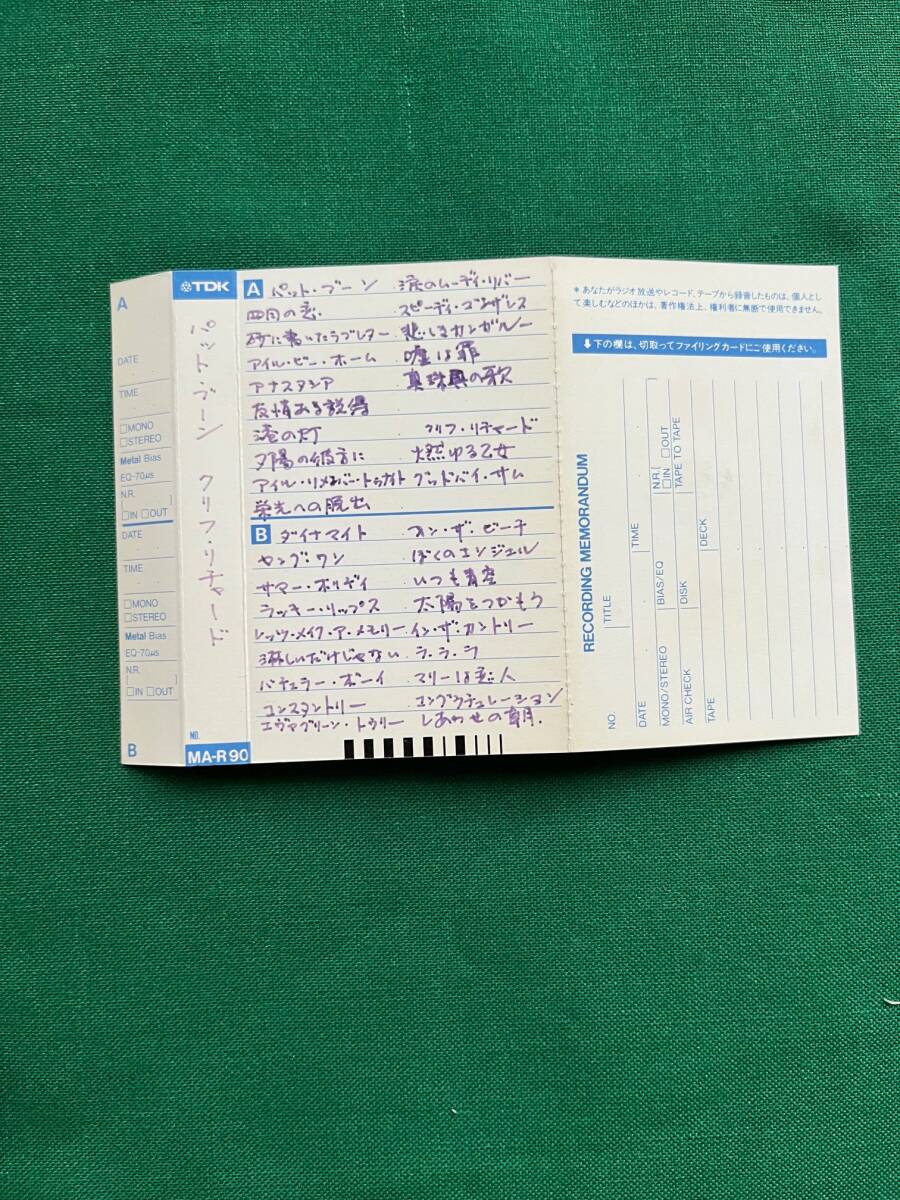 A
DATE
TIME
□MONO
□STEREO
Metal Bias
EQ-70μs
N.R.
[ ]
□IN □OUT
DATE
TIME
□MONO
□STEREO
Metal Bias
EQ-70μs
N.R.
[ ]
□IN □OUT
B
TDK
パット・ブーン クリフ・リチャード
NO.
MA-R 90
A パット・ブーン 涙のムーディ・リバー
四月の恋 スピーディ・ゴンザレス
砂に書いたラブレター 悲しきカンガルー
アイル・ビー・ホーム 嘘は罪
アナスタシア 真珠貝の歌
友情ある説得
港の灯 クリフ・リチャード
夕陽の彼方に 燃ゆる乙女
アイル・リメンバー・トゥナイト グッドバイ・サム
栄光への脱出
B ダイナマイト オン・ザ・ビーチ
ヤング・ワン ぼくのエンジェル
サマー・ホリデイ いつも青空
ラッキー・リップス 太陽をつかもう
レッツ・メイク・ア・メモリー イン・ザ・カントリー
淋しいだけじゃない ラ・ラ・ラ
バチェラー・ボーイ マリーは恋人
コンスタントリー コングラチュレーション
エヴァグリーン・トゥリー しあわせの朝.
＊あなたがラジオ放送やレコード、テープから録音したものは、個人とし
て楽しむなどのほかは、著作権法上、権利者に無断で使用できません。
⬇下の欄は、切取ってファイリングカードにご使用ください。
RECORDING MEMORANDUM
NO. TITLE
DATE TIME
MONO/STEREO BIAS/EQ N.R.[ ]
□IN □OUT
AIR CHECK DISK TAPE TO TAPE
TAPE DECK